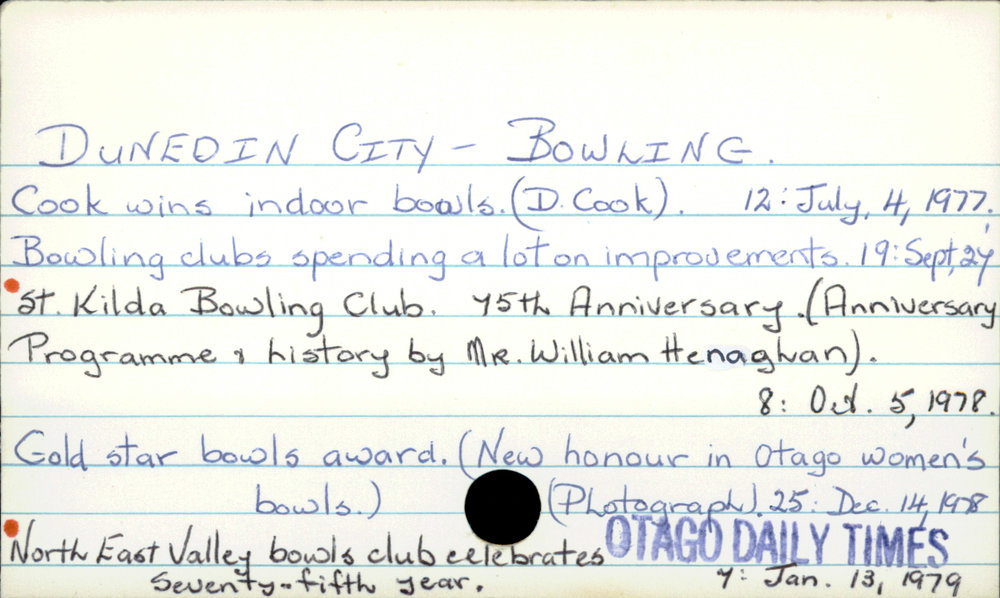 DUNEDIN CITY – BOWLING.
Cook wins indoor bowls. (D. Cook). 12: July, 4, 1977.
Bowling clubs spending a lot on improvements. 19: Sept, 27
St. Kilda Bowling Club. 75th Anniversary. (Anniversary
Programme & history by MR. William Henaghan).
8: Oct. 5, 1978.
Gold star bowls award. (New honour in Otago women's
bowls.) (Photograph). 25: Dec. 14, 1978
North East Valley bowls club celebrates OTAGO DAILY TIMES
Seventy-fifth year. 7: Jan. 13, 1979